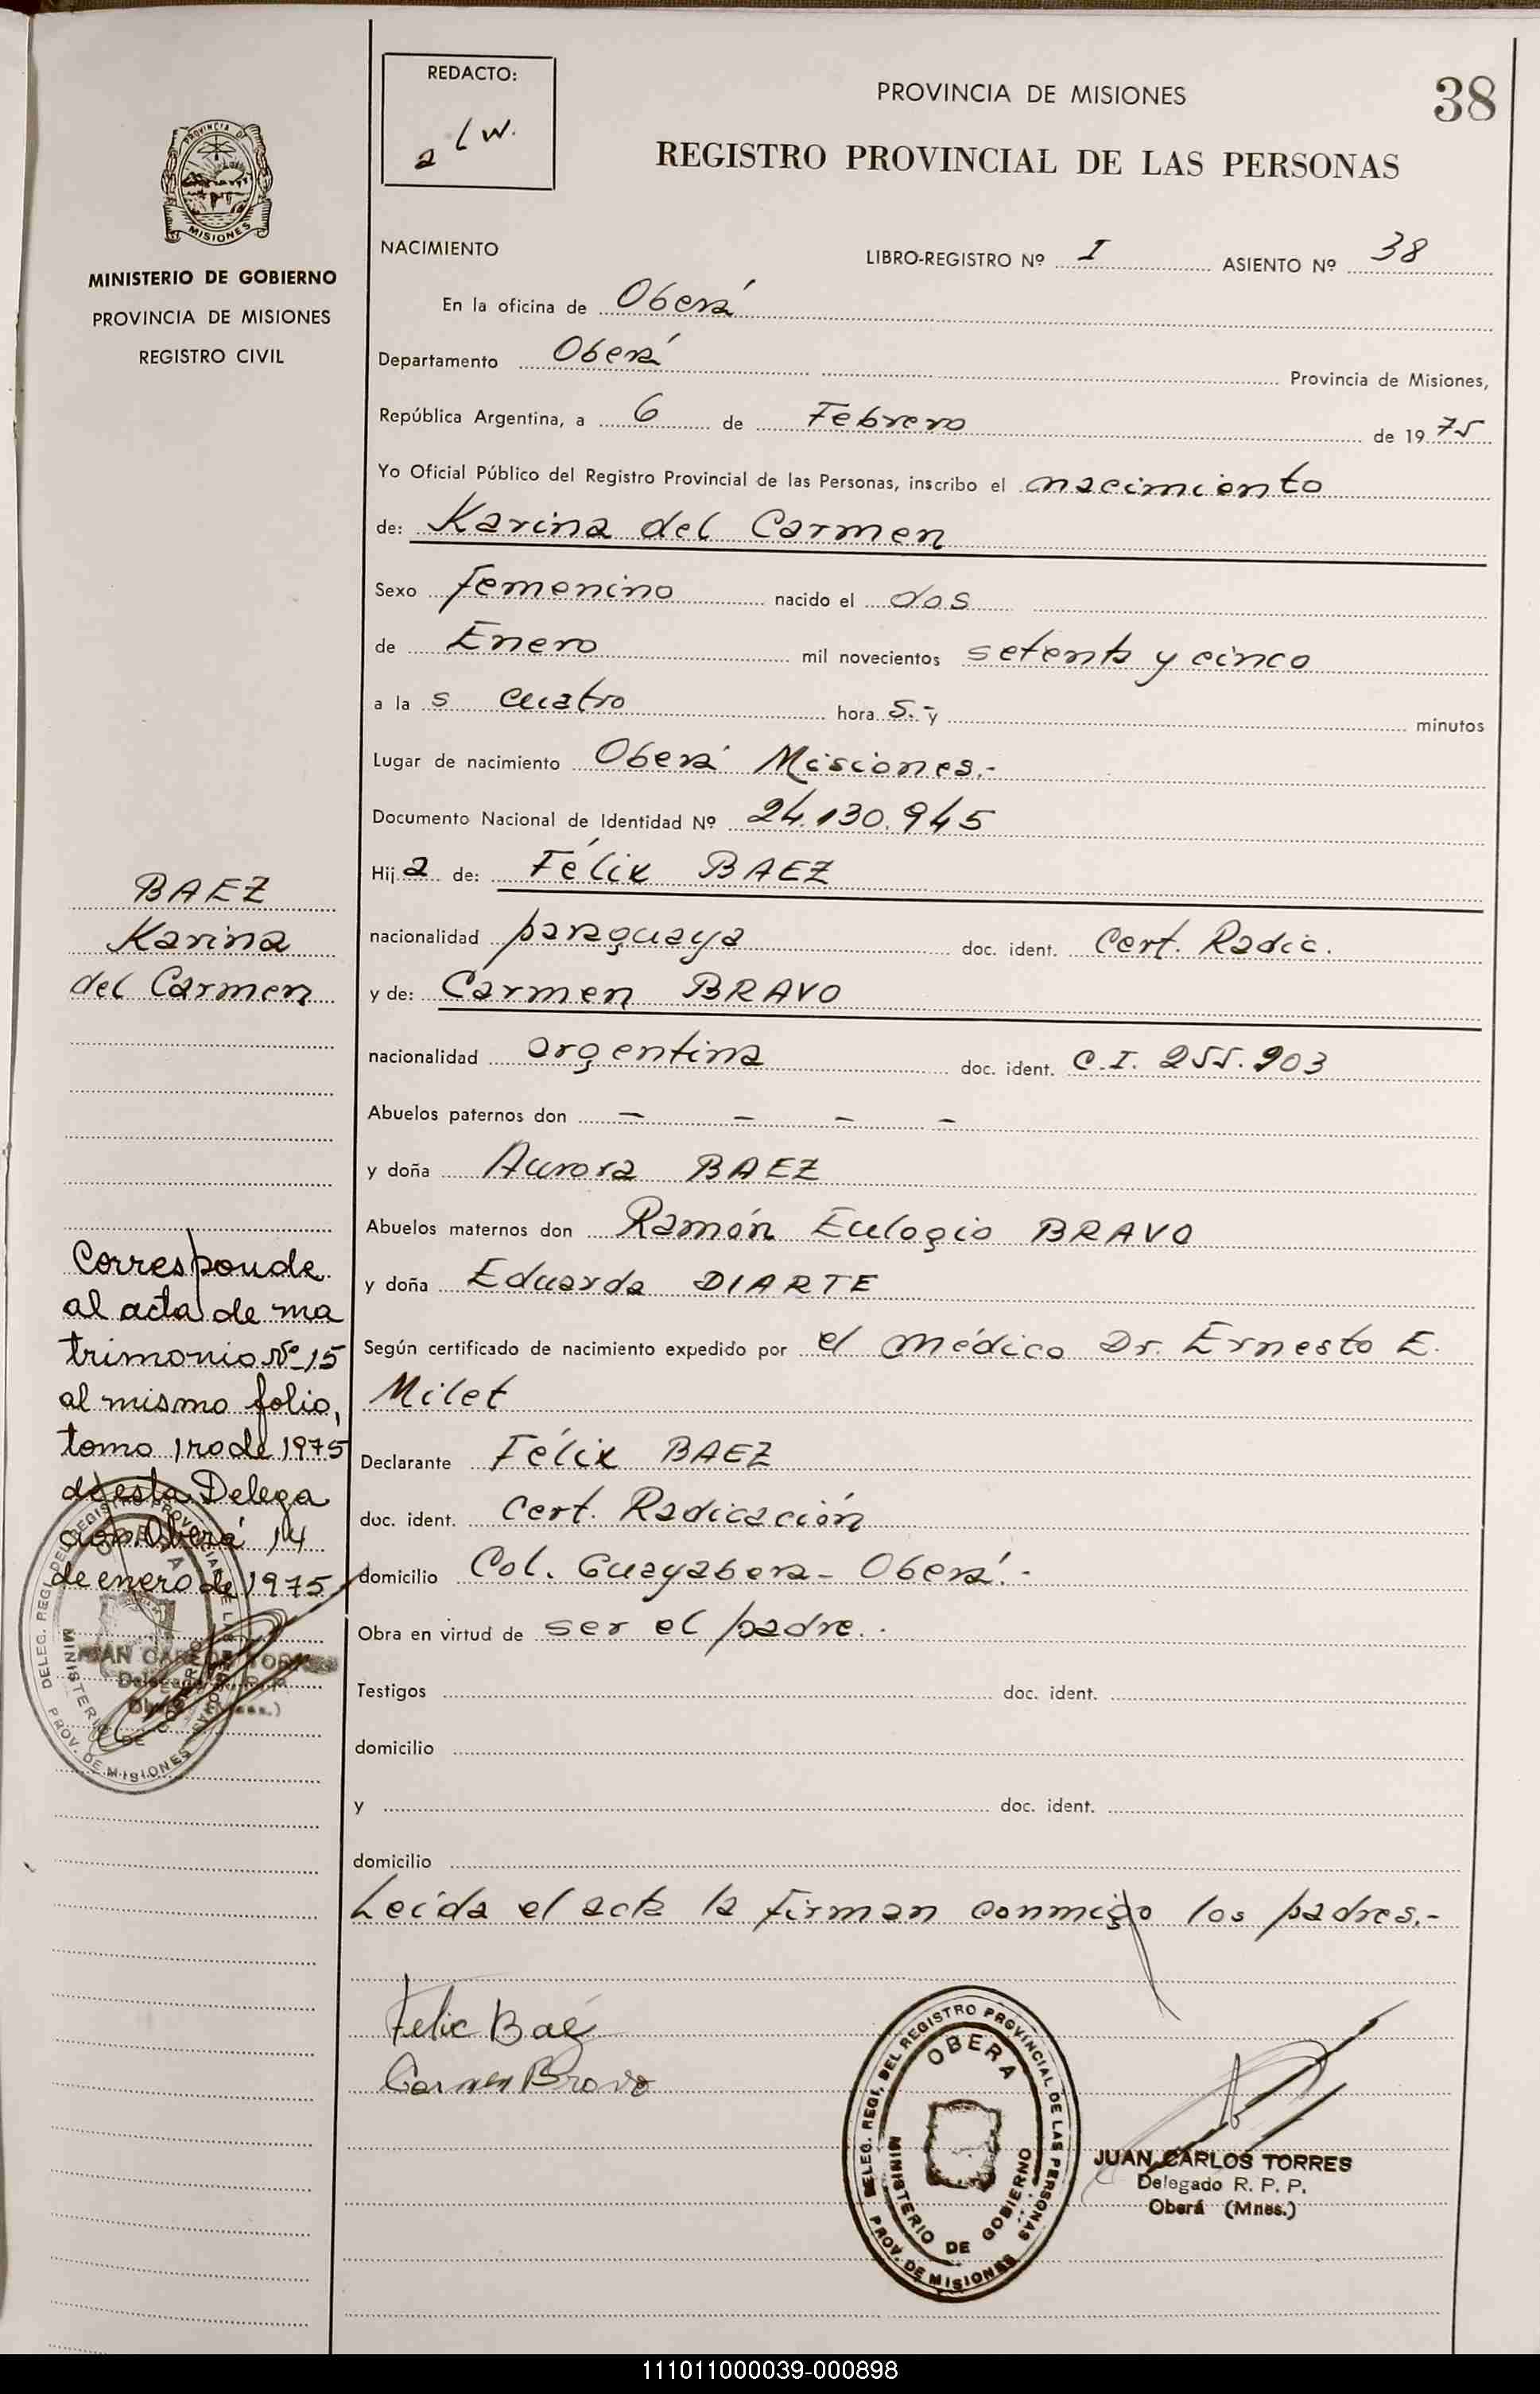 REDACTO:
a l w.
PROVINCIA DE MISIONES
38
REGISTRO PROVINCIAL DE LAS PERSONAS
PROVINCIA DE
MISIONES
MINISTERIO DE GOBIERNO
PROVINCIA DE MISIONES
REGISTRO CIVIL
NACIMIENTO LIBRO-REGISTRO Nº I ASIENTO Nº 38
En la oficina de Oberá
Departamento Oberá Provincia de Misiones,
República Argentina, a 6 de Febrero de 1975
Yo Oficial Público del Registro Provincial de las Personas, inscribo el nacimiento
de: Karina del Carmen
Sexo femenino nacido el dos
de Enero mil novecientos setenta y cinco
a la s cuatro hora s.- y minutos
Lugar de nacimiento Oberá Misiones.-
Documento Nacional de Identidad Nº 24.130.945
Hija de: Félix BAEZ
nacionalidad paraguaya doc. ident. Cert. Radic.
y de: Carmen BRAVO
nacionalidad argentina doc. ident. C.I. 255.903
Abuelos paternos don - - - -
y doña Aurora BAEZ
Abuelos maternos don Ramón Eulogio BRAVO
y doña Eduarda DIARTE
Según certificado de nacimiento expedido por el médico Dr. Ernesto E.
Milet
Declarante Félix BAEZ
doc. ident. Cert. Radicación
domicilio Col. Guayabera - Oberá.-
Obra en virtud de ser el padre.
Testigos doc. ident.
domicilio
y doc. ident.
domicilio
Leída el acta la firman conmigo los padres.-
Felix Baéz
Carmen Bravo
BAEZ
Karina
del Carmen
Corresponde
al acta de ma
trimonio Nº 15
al mismo folio,
tomo 1ro de 1975
de esta Delega
cion Oberá 14
de enero de 1975
JUAN CARLOS TORRES
Delegado R. P. P.
Oberá (Mnes.)
DELEG. REGI. DEL REGISTRO PROVINCIAL DE LAS PERSONAS
OBERA
MINISTERIO DE GOBIERNO
PROV. DE MISIONES
DELEG. REGI. DEL REGISTRO PROVINCIAL DE LAS PERSONAS
OBERA
MINISTERIO DE GOBIERNO
PROV. DE MISIONES
JUAN CARLOS TORRES
Delegado R. P. P.
Oberá (Mnes.)
111011000039-000898